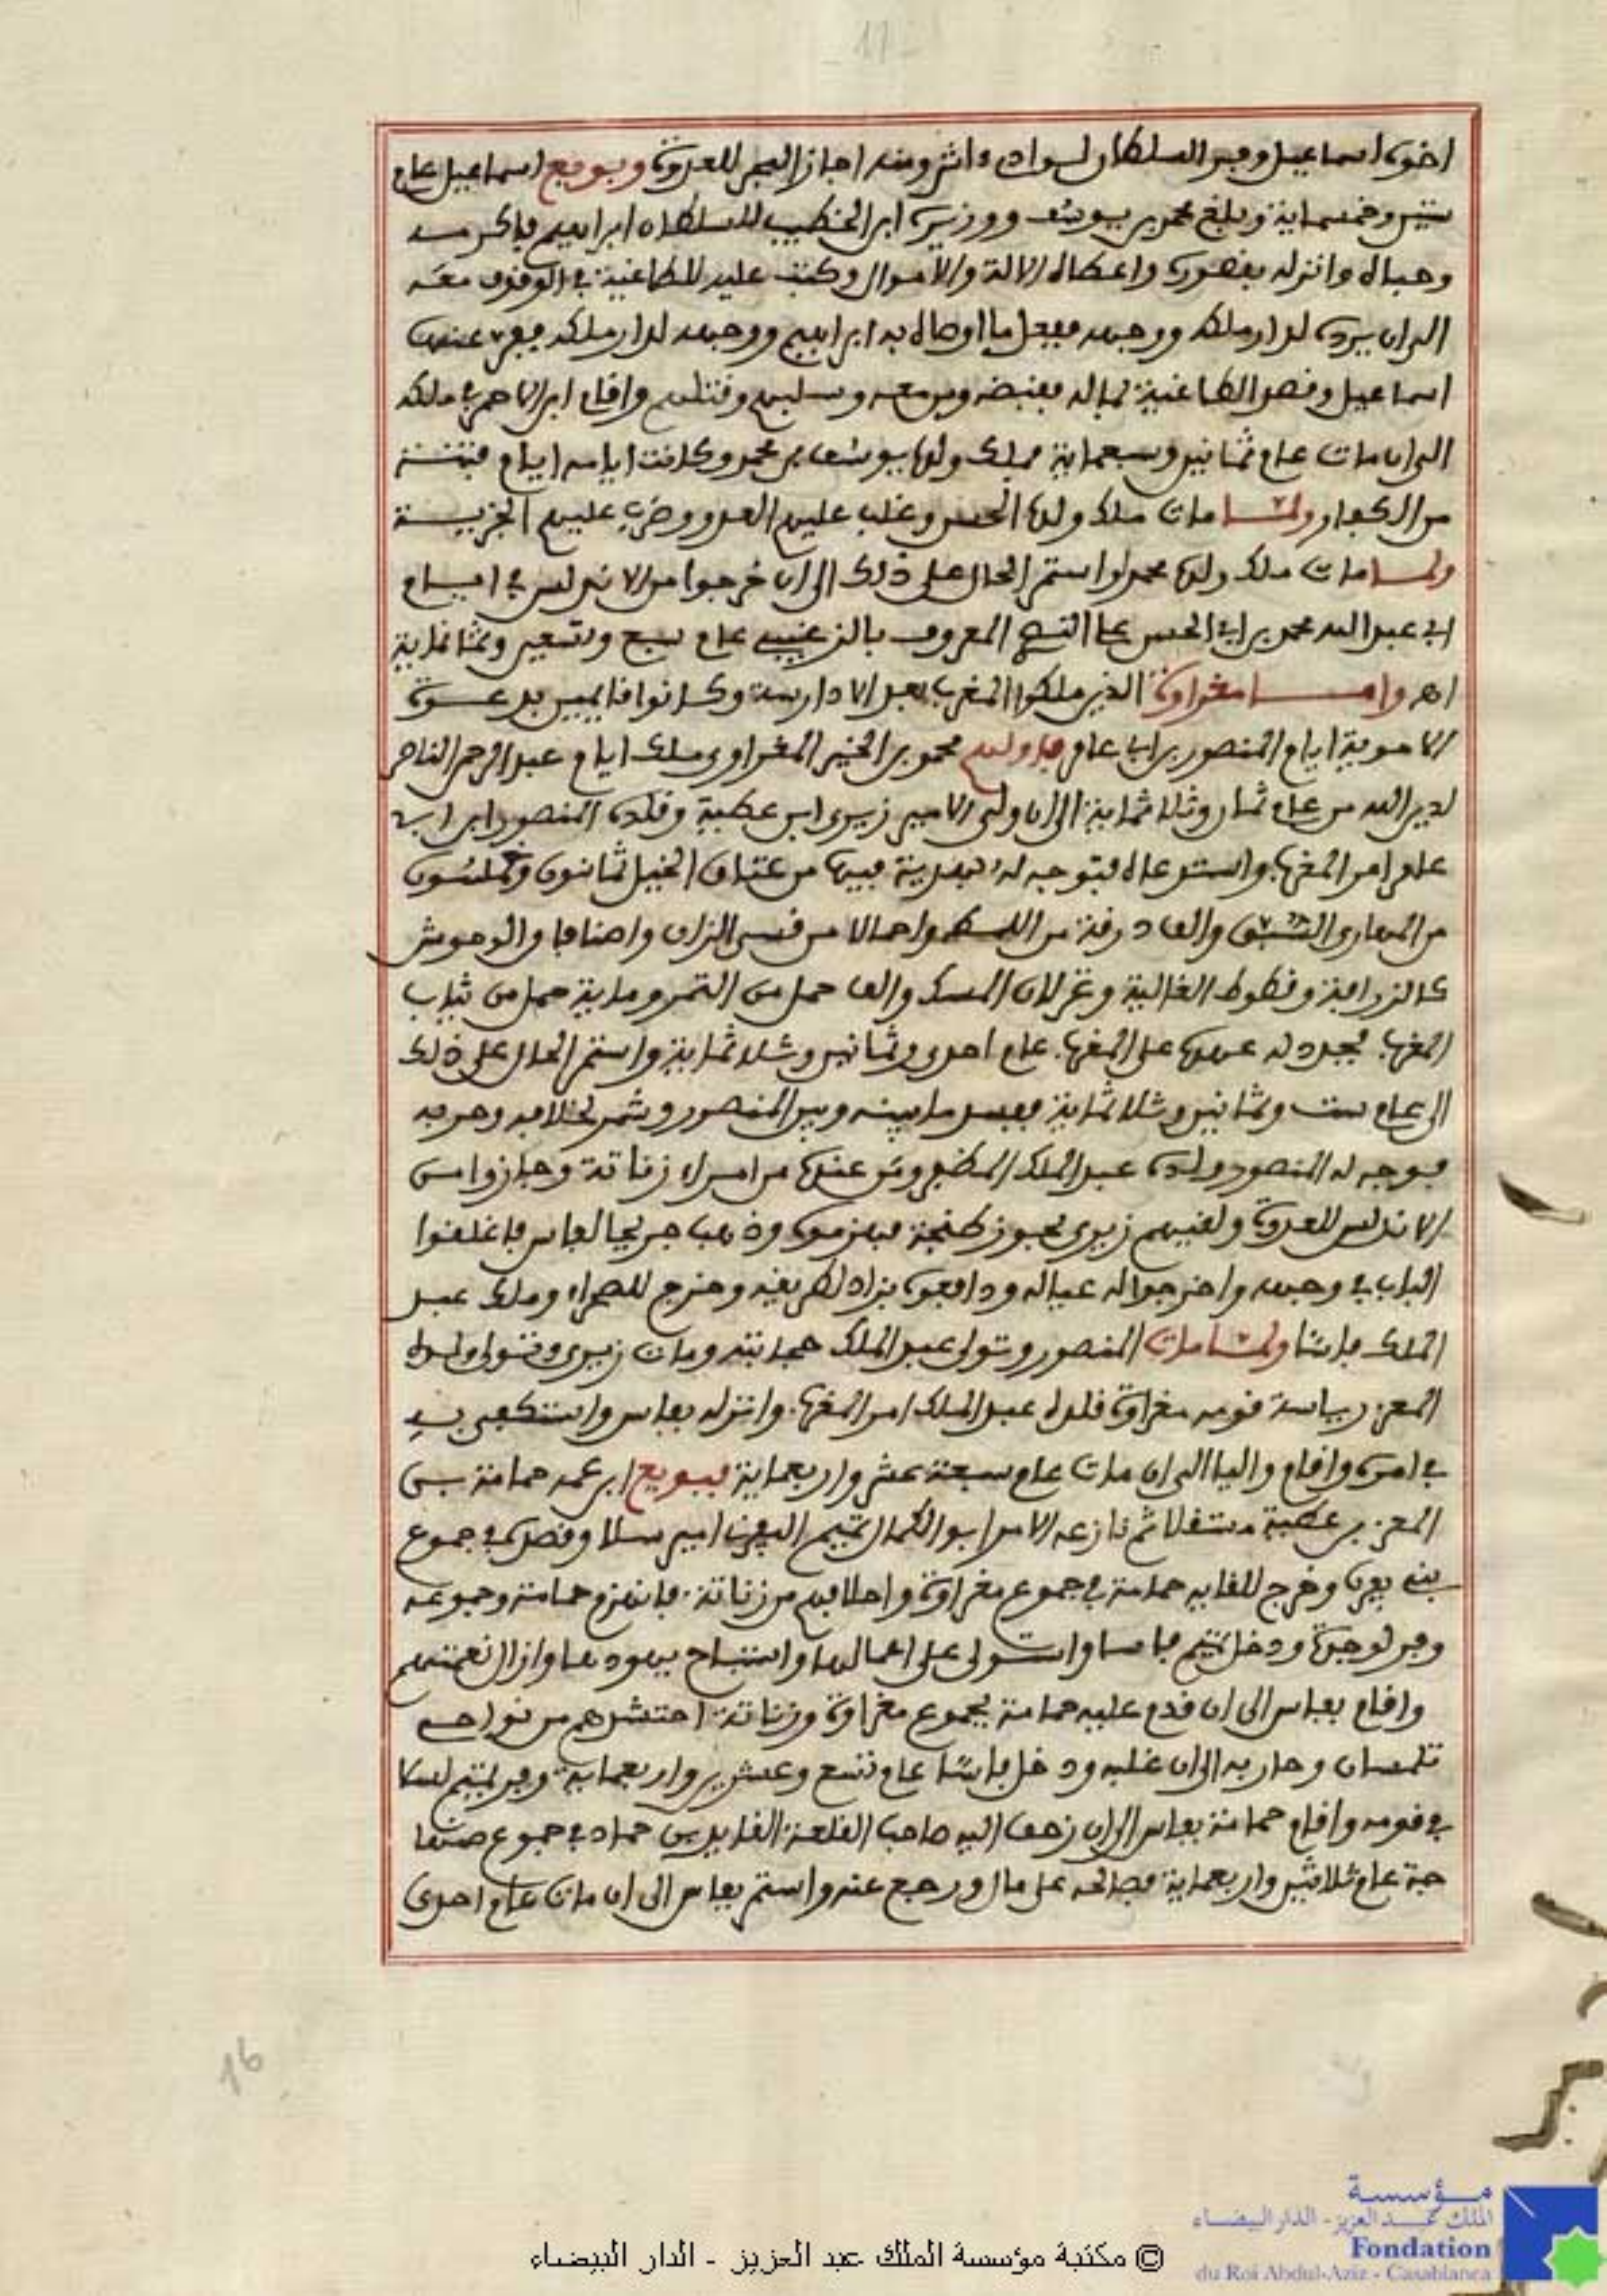 17
اخوه اسماعيل وفر السلطان لوادءاش ومنه اجاز البحر للعدوة وبويع اسماعيل عام
ستين وخمسماية وبلغ محمد بن يوسف ووزيره ابن الخطيب للسلطان ابراهيم فاكرمه
وحباه وانزله بقصوره واعطاه الالة والاموال وكتب عليه للطاغية في الوقوف معه
الى ان يرده لدار ملكه ووجهه ففعل ما اوصاه به ابراهيم ووجهه لدار ملكه ففر عنها
اسماعيل وقصد الطاغية بماله فقبضه ومن معه وسلبهم وقتلهم واقام ابن الاحمر في ملكه
الى ان مات عام ثمانين وسبعماية فملك ولده يوسف بن محمد وكانت ايامه ايام فتنة
من الكفار ولما مات ملك ولده الحسن وغلب عليهم العدو وضرب عليهم الجزية
ولما مات ملك ولده محمد واستمر الحال على ذلك الى ان خرجوا من الاندلس في ايام
ابي عبد الله محمد بن ابي الحسن المعروف بالزغيبي عام سبع وتسعين وثمانماية
اهـ واما مغراوة الذين ملكوا المغرب بعد الادارسة وكانوا قايمين بدعوة
الاموية ايام المنصور بن ابي عامر فاولهم محمد بن الخير المغراوي ملك ايام عبد الرحمن الناصر
لدين الله من عام ثمان وثلاثماية الى ان ولي الامير زيري ابن عطية وقلده المنصور ابن ابي
عامر امر المغرب واستدعاه فتوجه له بهدية فيها من عتاق الخيل ثمانون وخمسون
من المهاري السبق والف درقة من اللمط واحمالا من قسي الزان واصنافا والوحوش
كالزرافة وقطوط الغالية وغزلان المسك والف حمل من التمر وماية حمل من ثياب
المغرب فجدد له عهده على المغرب عام احدى وثمانين وثلاثماية واستمر الحال على ذلك
الى عام ست وثمانين وثلاثماية ففسد ما بينه وبين المنصور وشمر لخلافه وحربه
فوجه له المنصور ولده عبد الملك المظفر ومن عنده من امراء زناتة وجازوا من
الاندلس للعدوة ولقيهم زيري بحوز طنجة فهزموه وذهب جريحا لفاس فاغلقوا
الباب في وجهه واخرجوا له عياله ودافعوه بزاد لطريقه وخرج للصحراء وملك عبد
الملك فاسا ولما مات المنصور وتولى عبد الملك حجابته ومات زيري وتولى ولده
المعز رياسة قومه مغراوة قلده عبد الملك امر المغرب وانزله بفاس واستكفى به
في امره واقام واليا الى ان مات عام سبعة عشر واربعماية فبويع ابن عمه حمامة بن
المعز بن عطية مستقلا ثم نازعه الامر ابو الكمال تميم اليفرني امير سلا وقصده في جموع
بني يفرن وخرج للقايه حمامة في جموع مغراوة واحلافهم من زناتة فانهزم حمامة وجموعه
وفر لوجدة ودخل تميم فاسا واستولى على اعمالها واستباح يهودها وازال نعمتهم
واقام بفاس الى ان قدم عليه حمامة بجموع مغراوة وزناتة احتشدهم من نواحي
تلمسان وحاربه الى ان غلبه ودخل فاسا عام تسع وعشرين واربعماية وفر تميم لسلا
في قومه واقام حمامة بفاس الى ان زحف اليه صاحب القلعة القايد بن حماد في جموع صنها
جة عام ثلاثين واربعماية فصالحه على مال ورجع عنه واستمر بفاس الى ان مات عام احدى
16
© مكتبة مؤسسة الملك عبد العزيز - الدار البيضاء
مؤسسة
الملك عبد العزيز - الدار البيضاء
Fondation
du Roi Abdul-Aziz - Casablanca